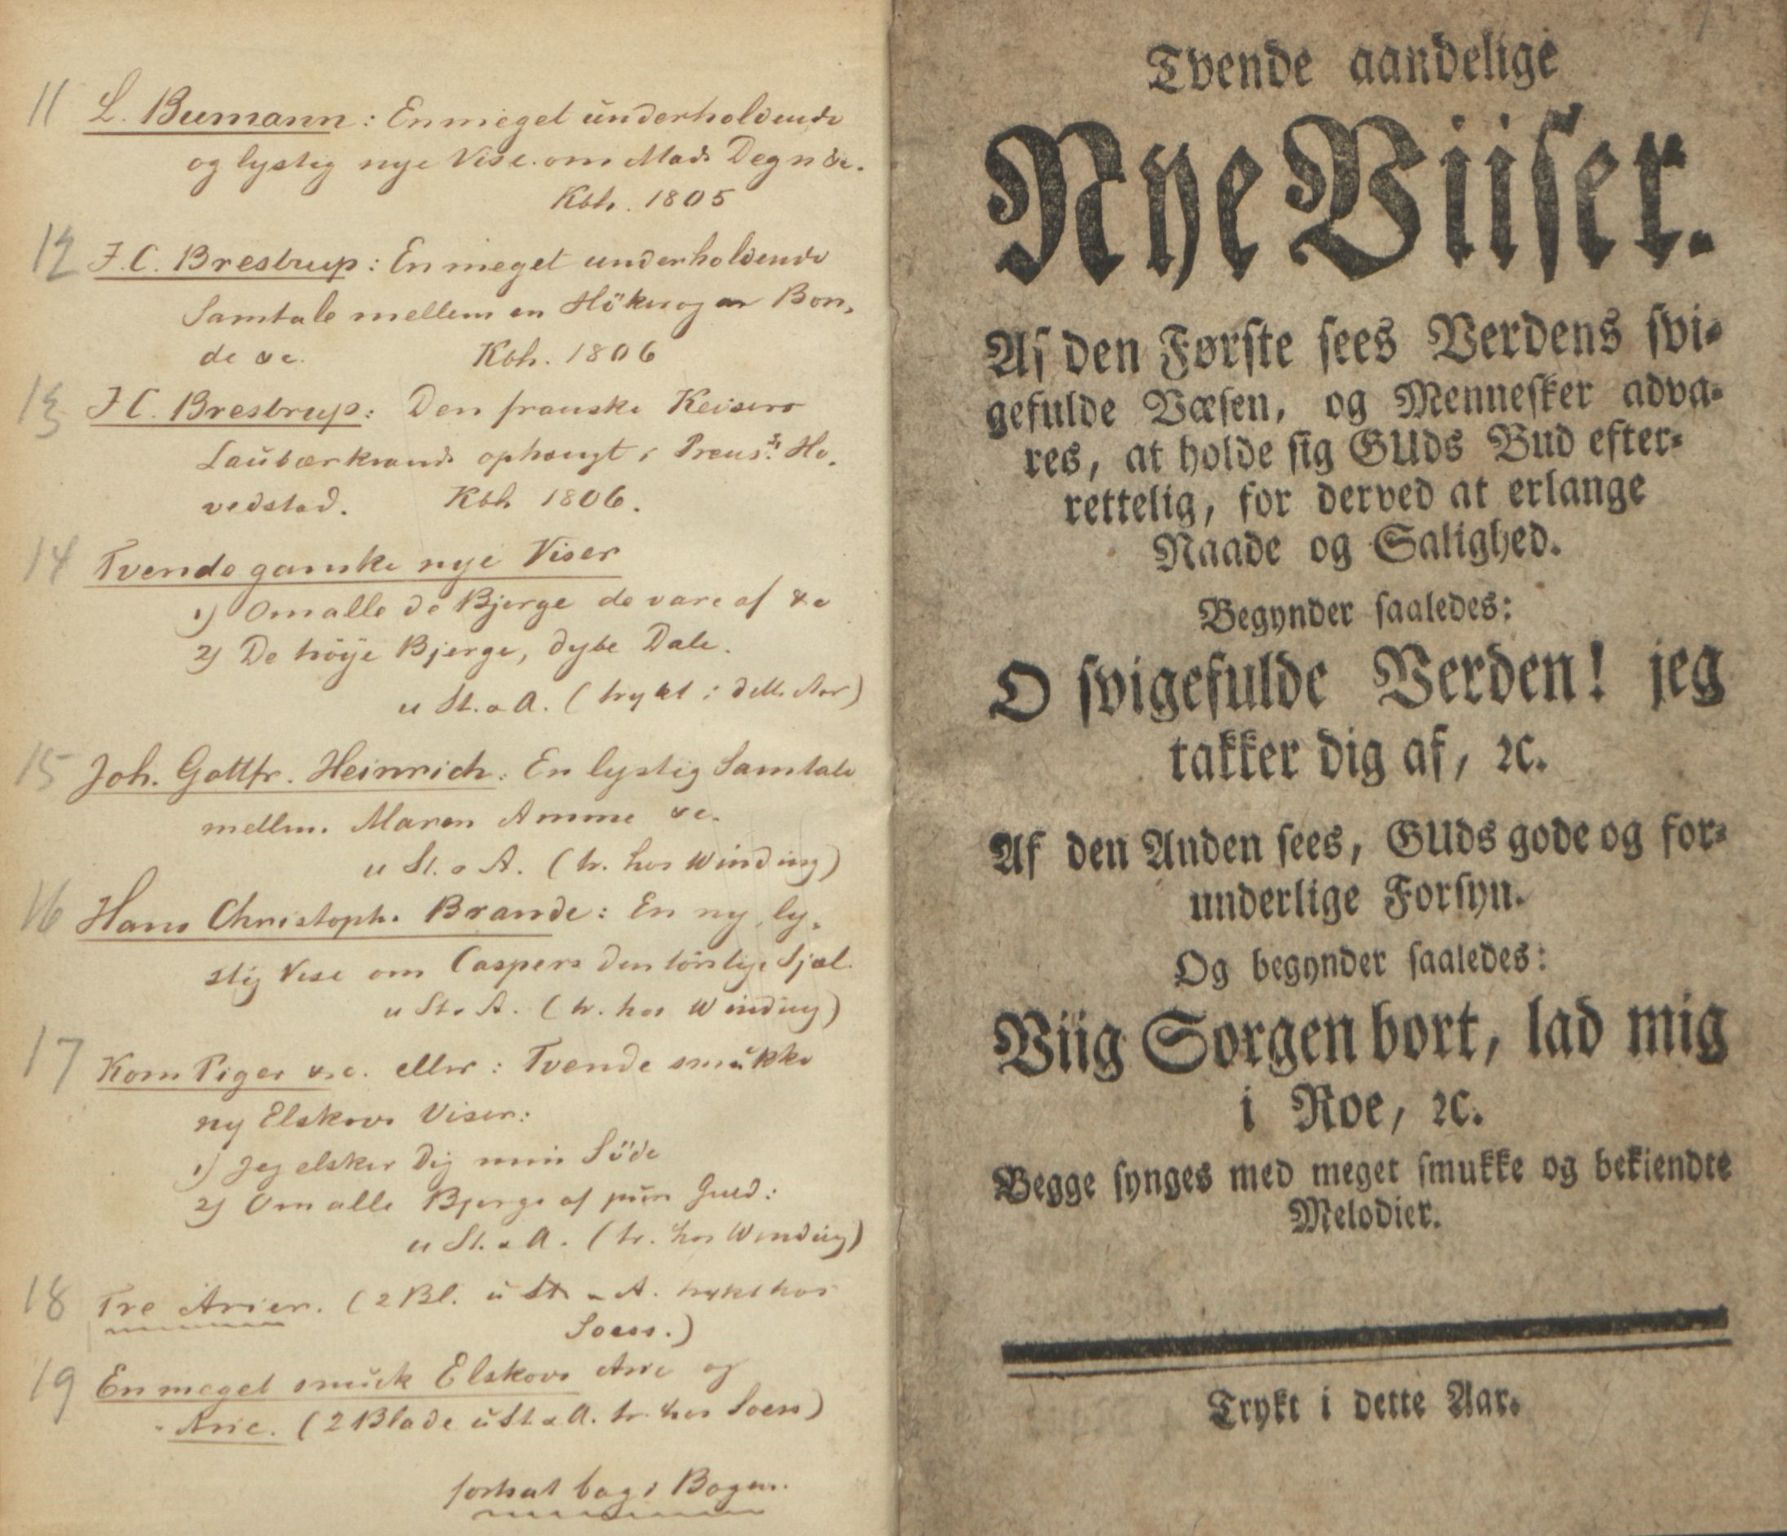 11 L. Bumann: En meget underholdende
og lystig nye Vise om Mads Degn &c.
Kbh. 1805
12 J.C. Brestrup: En meget underholdende
Samtale mellem en Höker og en Bon-
de &c. Kbh. 1806
13 J C. Brestrup: Den franske Keisers
Laubærkrands ophængt i Preus.s Ho-
vedstad. Kbh 1806.
14 Tvende ganske nye Viser
1) Om alle de Bjerge de vare af &c
2) De höije Bjerge, dybe Dale.
u St. o A. (trykt i dette Aar)
15 Joh. Gottfr. Heinrich: En lystig Samtale
mellm. Maren Amme &c.
u St. o A. (tr. hos Winding)
16 Hans Christoph. Brande: En ny ly-
stig Vise om Caspers den törstige Sjæl.
u St. o A. (tr. hos Winding)
17 Kom Piger &c. eller: Tvende smukke
ny Elskovs Viser:
1) Jeg elsker Dig min Söde
2) Om alle Bjerge af puur Guld:
u St. o A. (tr. hos Winding)
18 Tre Arier. (2 Bl. u St o A. trykt hos
Soess.)
19 En meget smuck Elskovs Arie og
Arie. (2 Blade u St o A. tr. hos Soess)
fortsat bag i Bogen.
Tvende aandelige
Nye Viiser.
Af den Første sees Verdens svi-
gefulde Væsen, og Mennesker adva-
res, at holde sig GUds Bud efter-
rettelig, for derved at erlange
Naade og Salighed.
Begynder saaledes:
O svigefulde Verden! jeg
takker dig af, ꝛc.
Af den Anden sees, GUds gode og for-
underlige Forsyn.
Og begynder saaledes:
Viig Sorgen bort, lad mig
i Roe, ꝛc.
Begge synges med meget smukke og bekiendte
Melodier.
Trykt i dette Aar.